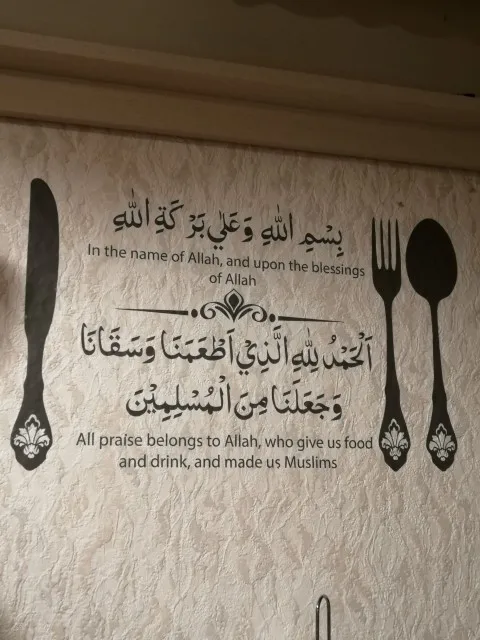 بِسْمِ اللهِ وَعَلٰي بَرَكَةِ اللهِ
In the name of Allah, and upon the blessings
of Allah
اَلْحَمْدُ لِلّٰهِ الَّذِيْ اَطْعَمَنَا وَسَقَانَا
وَجَعَلَنَا مِنَ الْمُسْلِمِيْنَ
All praise belongs to Allah, who give us food
and drink, and made us Muslims